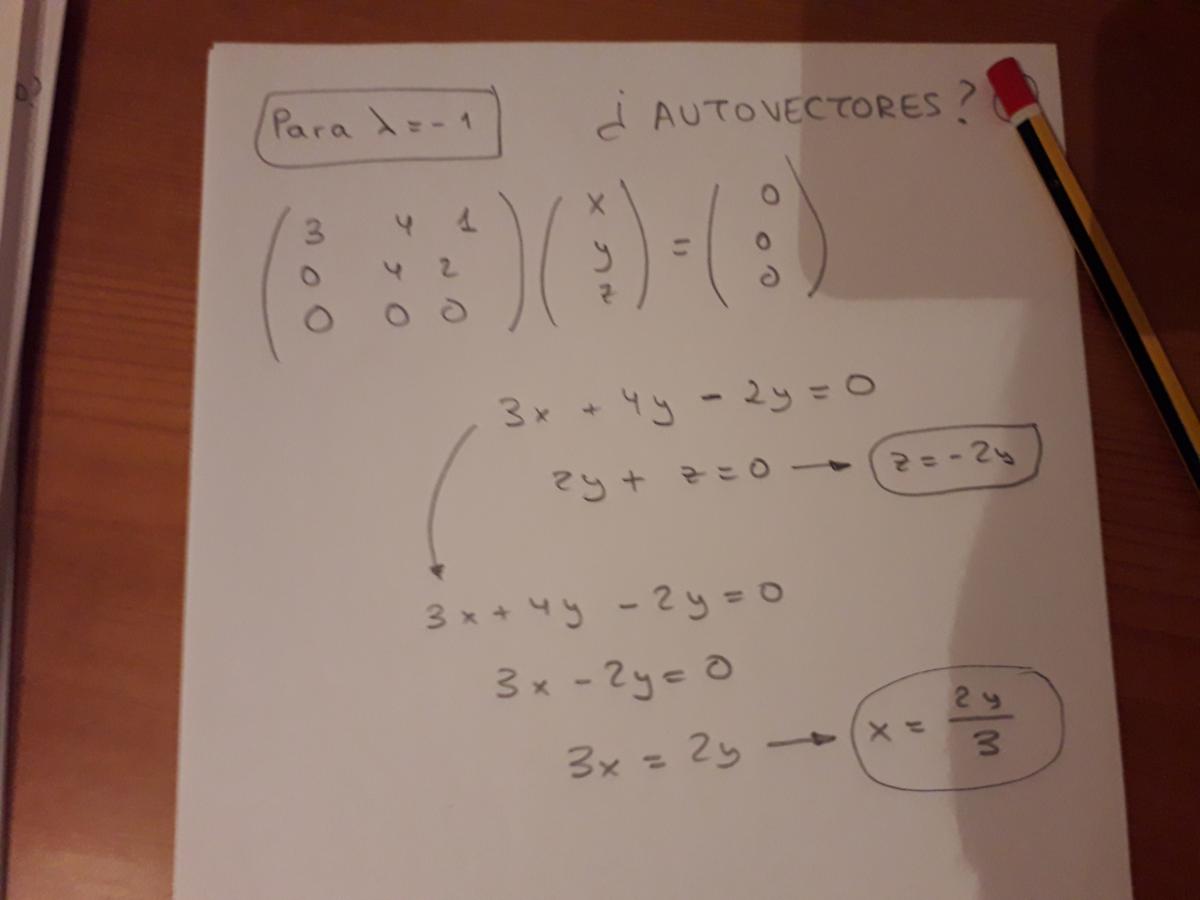 Para λ = -1
¿ AUTOVECTORES ?
3 4 1
0 4 2
0 0 0
x
y
z
=
0
0
0
3x + 4y - 2y = 0
2y + z = 0 → z = -2y
3x + 4y - 2y = 0
3x - 2y = 0
3x = 2y → x = 2y/3